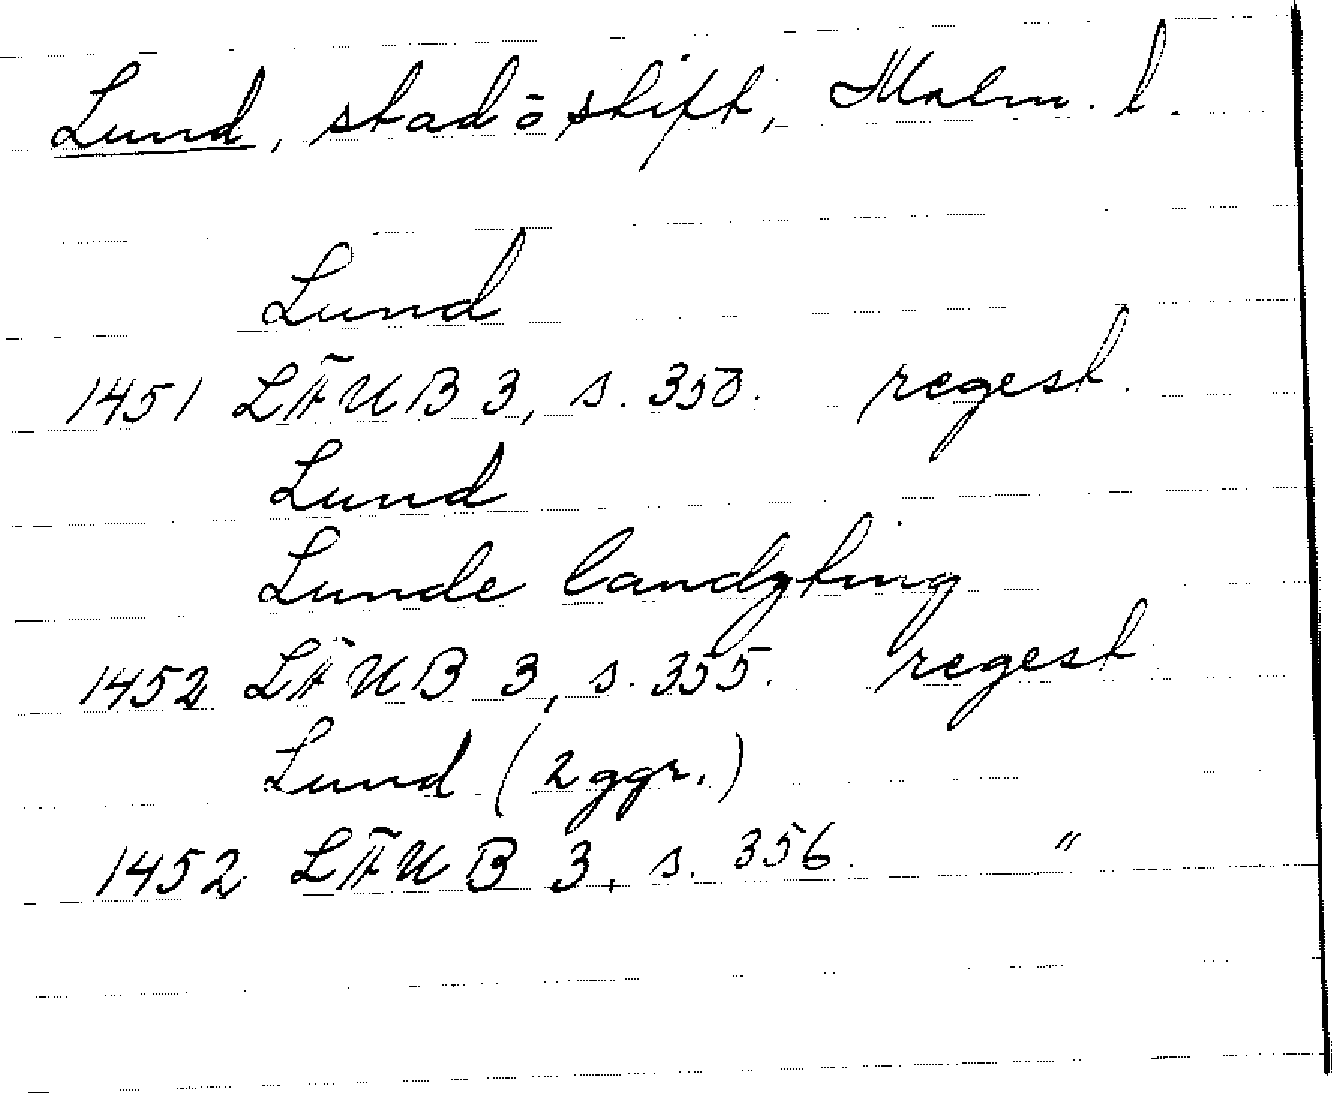 Lund, stad ö stift, Malm. l.
Lund
1451 LÄUB 3, s. 353. regest.
Lund
Lunde landzting
1452 LÄUB 3, s. 355. regest
Lund (2 ggr.)
1452 LÄUB 3, s. 356. "